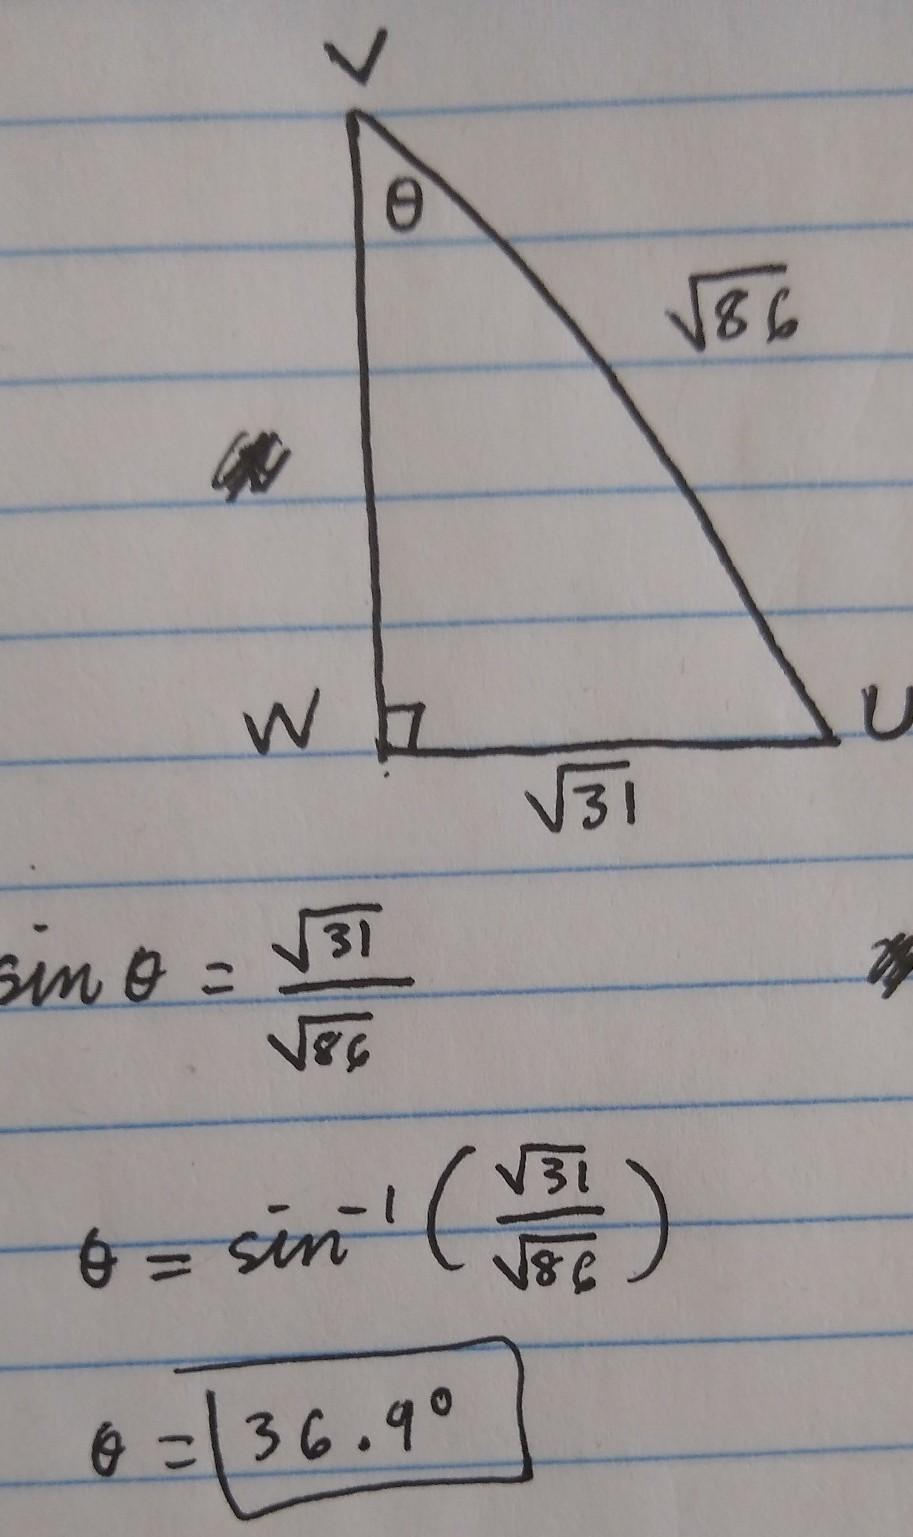 V
θ
√86
W
U
√31
sin θ = √31/√86
θ = sin⁻¹(√31/√86)
θ = 36.9°